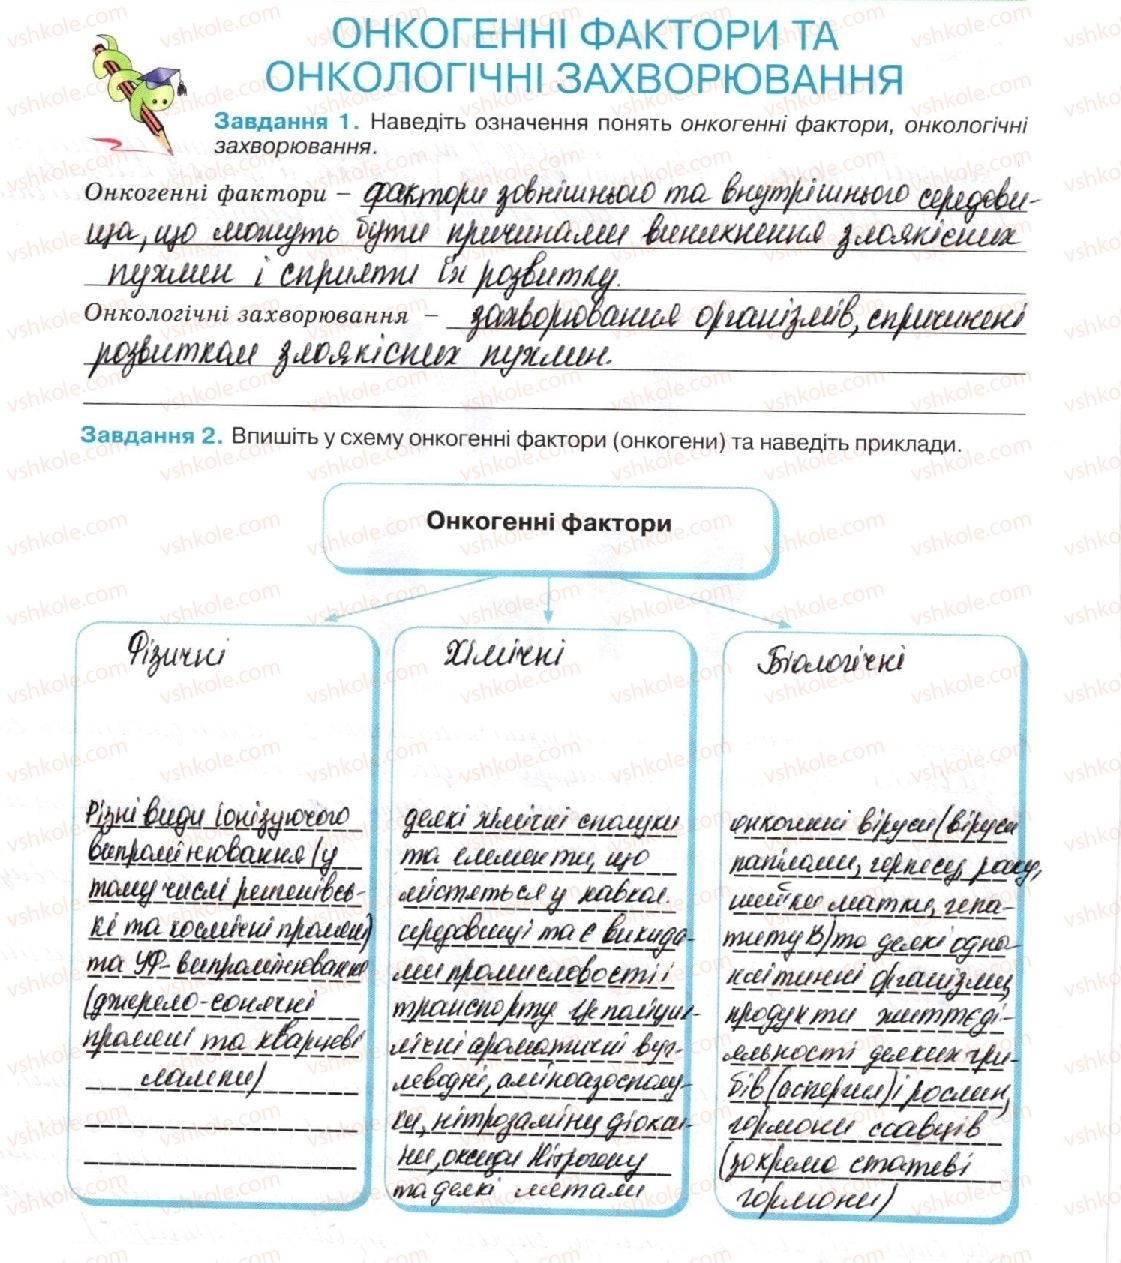 ОНКОГЕННІ ФАКТОРИ ТА
ОНКОЛОГІЧНІ ЗАХВОРЮВАННЯ
Завдання 1. Наведіть означення понять онкогенні фактори, онкологічні
захворювання.
Онкогенні фактори – фактори зовнішнього та внутрішнього середови-
ща, що можуть бути причинами виникнення злоякісних
пухлин і сприяти їх розвитку.
Онкологічні захворювання – захворювання організмів, спричинені
розвитком злоякісних пухлин.
Завдання 2. Впишіть у схему онкогенні фактори (онкогени) та наведіть приклади.
Онкогенні фактори
Фізичні
Різні види іонізуючого
випромінювання (у
тому числі рентгенівсь-
кі та космічні промені)
та УФ-випромінювання
(джерело-сонячні
промені та кварцеві
лампи)
Хімічні
деякі хімічні сполуки
та елементи, що
містяться у навкол.
середовищі та є викида-
ми промисловості і
транспорту Це поліцик-
лічні ароматичні вуг-
леводні, аміноазосполу-
ки, нітрозаміни діокси-
ни, оксиди Нітрогену
та деякі метали
Біологічні
онкогенні віруси (віруси
папіломи, герпесу, раку,
шийки матки, гепа-
титу В) та деякі одно-
клітинні організми,
продукти життєді-
яльності деяких гри-
бів (аспергил) і рослин,
гормони ссавців
(зокрема статеві
гормони)
vshkole.com